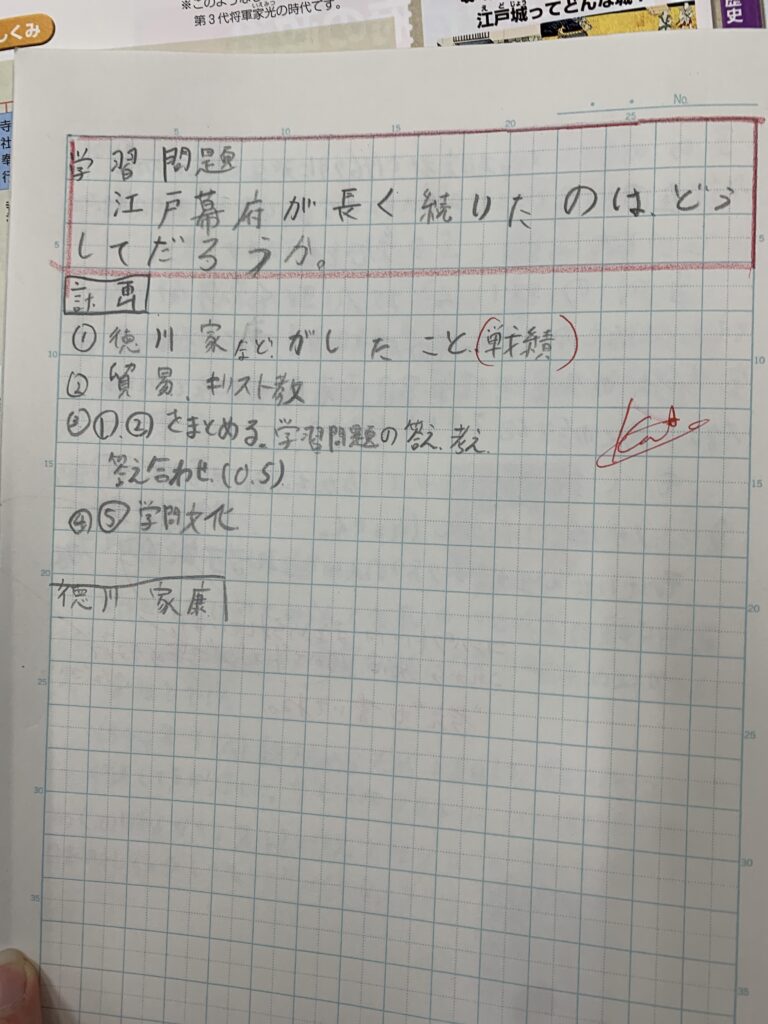 しくみ
※このような
第3代将軍家光の時代です。
いえみつ
江戸城ってどんな城
えどじょう
歴史
寺社奉行
No.
5 10 15 20 25
学習問題
江戸幕府が長く続けたのは、どう
してだろうか。
計画
① 徳川家などがしたこと、(戦績)
② 貿易、キリスト教
③①、②をまとめる。学習問題の答え、考え、
答え合わせ、(0.5)
④⑤学問文化
徳川 家康
5
10
15
20
25
30
35
10
15
20
25
30
35